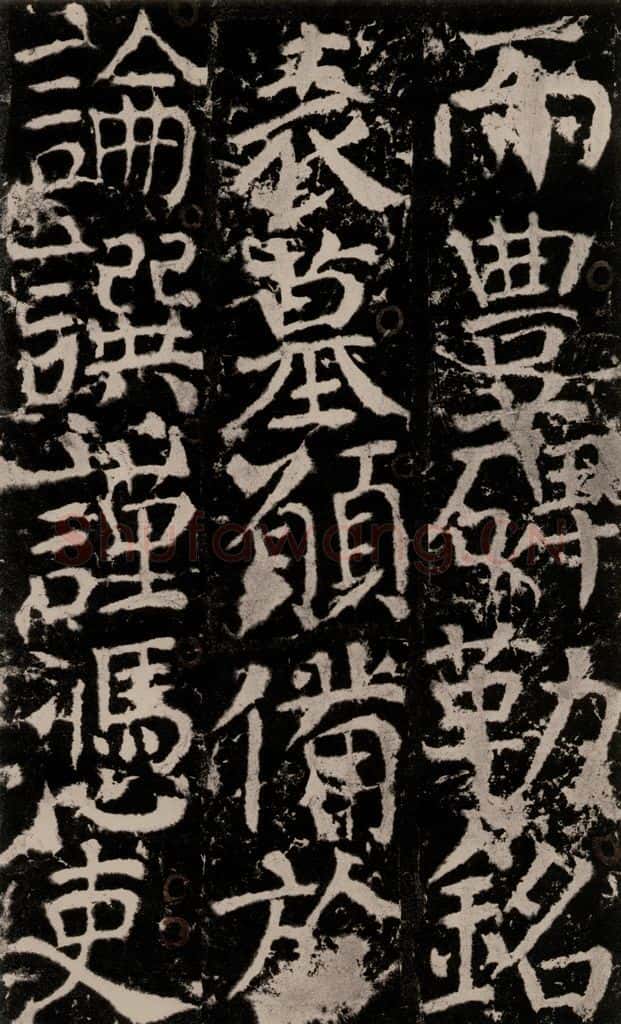 而豐碑勒銘
表墓須備於
論譔謹憑吏
Shufawang.CN